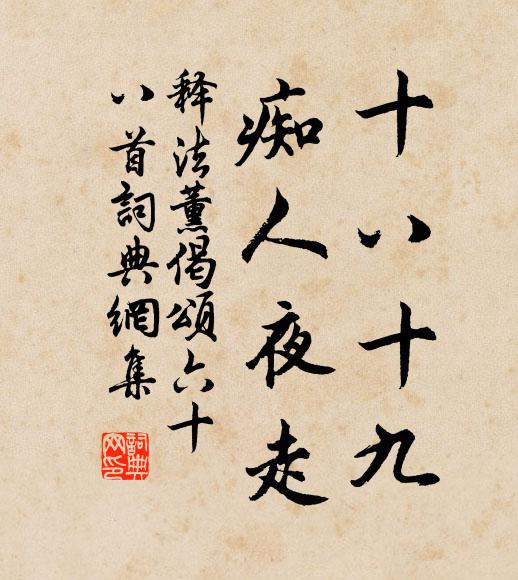 十八十九
痴人夜走
释法薰偈頌六十
八首詞典網集
詞典网印